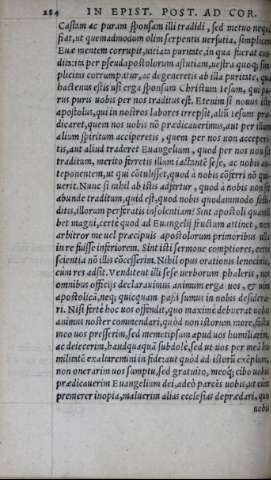 284 IN EPIST. POST. AD COR.
Castam ac puram sponsam illi tradidi, sed metuo nequa
fiat, ut quemadmodum olim serpentis uersutia, simplicem
Euæ mentem corrupit, uitiata puritate, in qua fuerat con
dita: ita per pseudapostolorum astutiam, uestra quoque sim
plicitas corrumpatur, ac degeneretis ab illa puritate, qua
hactenus estis usi erga sponsum Christum Iesum, qui pu-
rus puris uobis per nos traditus est. Etenim si nouus ille
apostolus, qui in nostros labores irrepsit, aliū Iesum præ-
dicaret, quem nos uobis nō prædicauerimus, aut per illum
alium spiritum acciperetis, quem per nos non accepe-
tis, aut aliud traderet Euangelium, quod per nos non sit
traditum, merito ferretis illum iactantē sese, ac nobis an-
teponentem, ut qui cōtulisset, quod à nobis cōferri nō qui
uerit. Nunc si nihil ab istis adfertur, quod à nobis non sit
abunde traditum, quid est, quod nobis quodammodo fasti-
ditis, illorum perferatis insolentiam? Sint apostoli quantū-
bet magni, certe quod ad Euangelij fructum attinet, non
arbitror me uel præcipuis apostolorum primoribus ulla
in re fuisse inferiorem. Sint isti sermone comptiores, certe
scientia nō illis cōcesserim. Nihil opus orationis lenocinio,
cum res adsit. Venditent illi sese uerborum phaleris, nos
omnibus officijs declarauimus animum erga uos, & uim
apostolicā, neque quicquam passi sumus in nobis desidera-
ri. Nisi forte hoc uos offendit, quo maxime debuerat nobis
animus noster commendari, quòd non istorum more, fastu
meo uos presserim, sed memetipsum apud uos humiliarim,
ac deiecerim, haudquaquā subdole, sed ut uos per meā hu
militatē exaltaremini in fide: aut quòd ad istorū exēplum,
non onerarim uos sumptu, sed gratuito, meoque cibo uobis
prædicauerim Euangelium dei, adeò parcēs uobis, ut cum
premerer inopia, maluerim alias ecclesias deprædari, quo
uobis